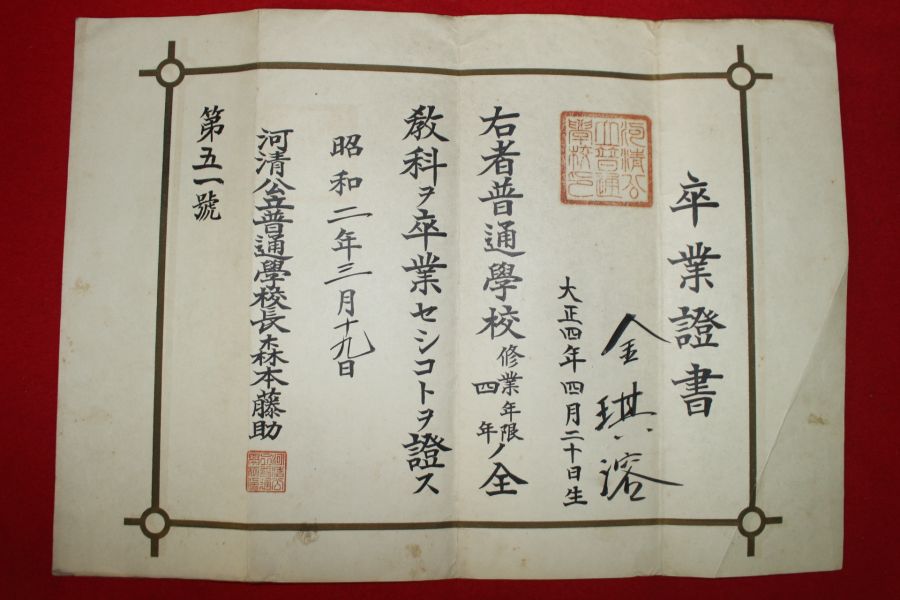 卒業證書
金琪溶
大正四年四月二十日生
河清公立普通學校印
右者普通學校修業年限四年ノ全
教科ヲ卒業セシコトヲ證ス
昭和二年三月十九日
河清公立普通學校長森本藤助
第五一號